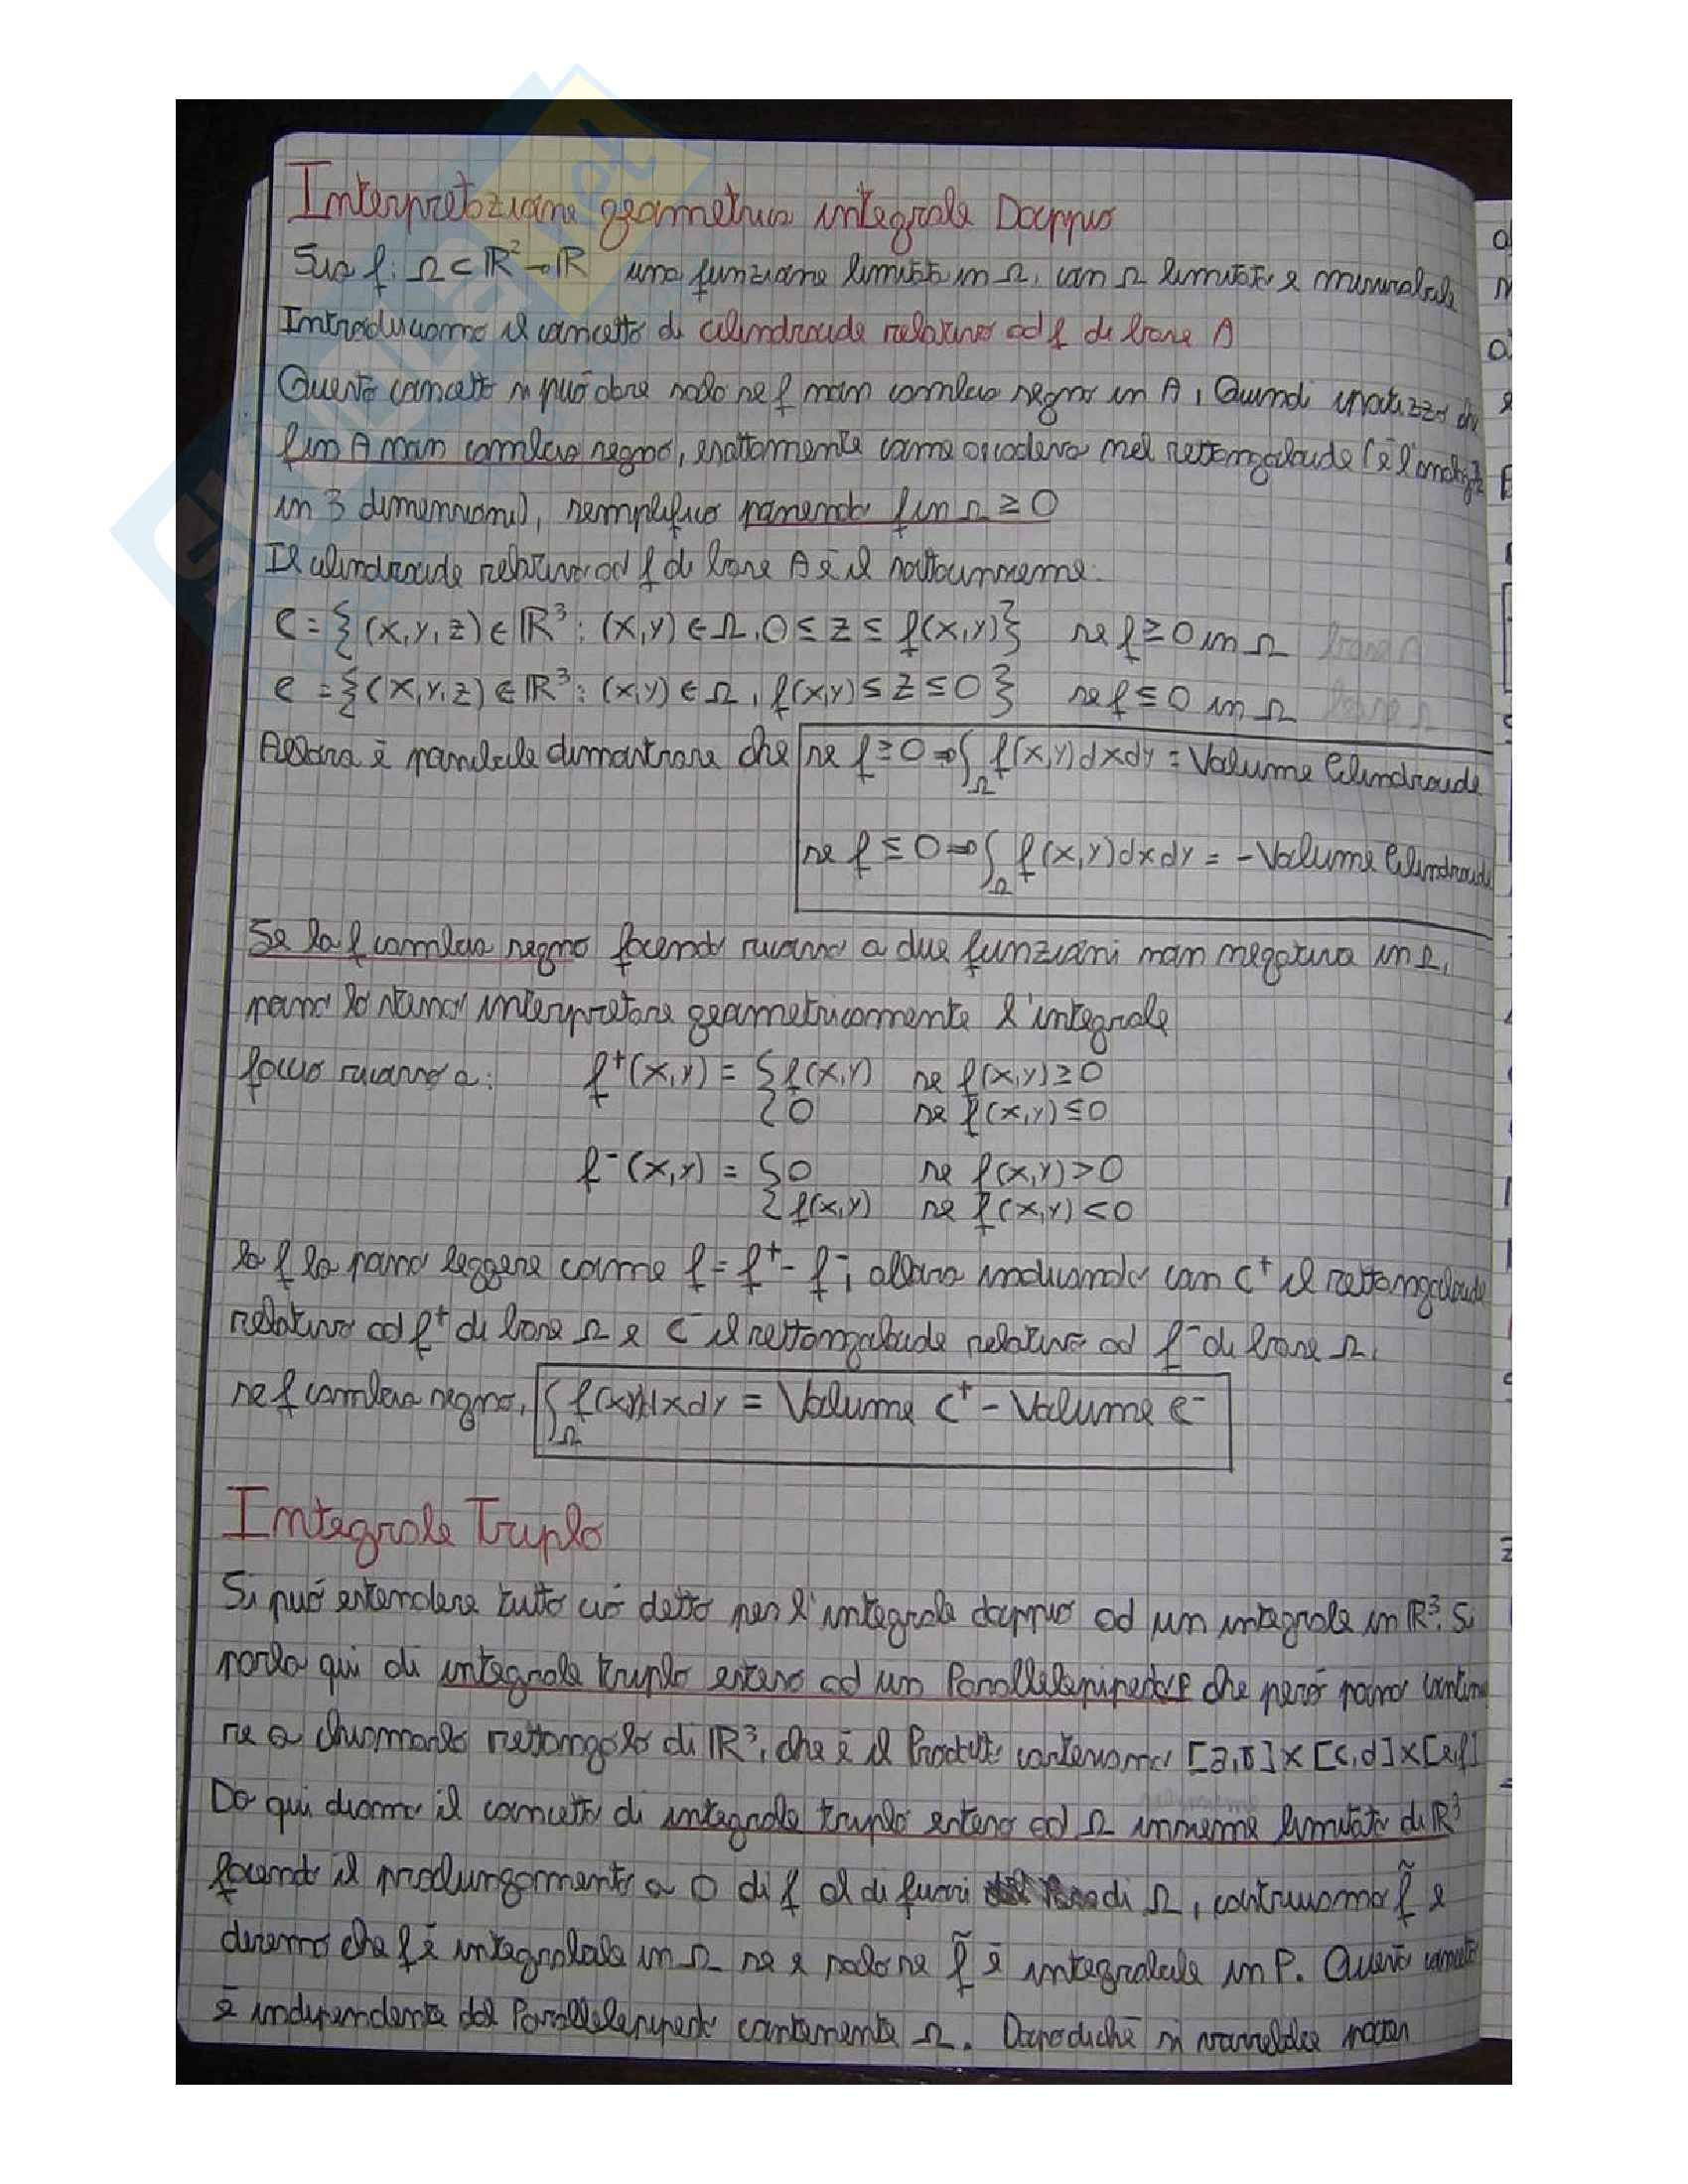 Interpretazione geometrica integrale Doppio
Sia f: Ω⊂ℝ²→ℝ una funzione limitata in Ω, con Ω limitato e misurabile
Introduciamo il concetto di cilindroide relativo ad f di base A
Questo concetto si può dare solo se f non cambia segno in A, Quindi ipotizzo che
f in A non cambia segno, esattamente come accadeva nel rettangoloide (è l'analogo
in 3 dimensioni), semplifico ponendo f in Ω ≥ 0
Il cilindroide relativo ad f di base A è il sottoinsieme:
C = {(x,y,z)∈ℝ³: (x,y)∈Ω, 0≤z≤f(x,y)} se f≥0 in Ω
C = {(x,y,z)∈ℝ³: (x,y)∈Ω, f(x,y)≤z≤0} se f≤0 in Ω
Allora è possibile dimostrare che se f≥0 ⇒ ∫_Ω f(x,y)dxdy = Volume Cilindroide
se f≤0 ⇒ ∫_Ω f(x,y)dxdy = -Volume Cilindroide
Se la f cambia segno facendo ricorso a due funzioni non negativa in Ω,
posso lo stesso interpretare geometricamente l'integrale
faccio ricorso a: f⁺(x,y) = { f(x,y) se f(x,y)≥0
{ 0 se f(x,y)≤0
f⁻(x,y) = { 0 se f(x,y)>0
{ f(x,y) se f(x,y)<0
la f la posso leggere come f = f⁺ - f⁻; allora indicando con C⁺ il rettangoloide
relativo ad f⁺ di base Ω e C⁻ il rettangoloide relativo ad f⁻ di base Ω,
se f cambia segno, ∫_Ω f(x,y)dxdy = Volume C⁺ - Volume C⁻
Integrale Triplo
Si può estendere tutto ciò detto per l'integrale doppio ad un integrale in ℝ³. Si
parla qui di integrale triplo esteso ad un Parallelepipedo P che però posso contin
re a chiamarlo rettangolo di ℝ³, che è il Prodotto cartesiano [a,b]×[c,d]×[e,f]
Da qui diamo il concetto di integrale triplo esteso ad Ω insieme limitato di ℝ³
facendo il prolungamento a 0 di f al di fuori di Ω, costruiamo f̃ e
diremo che f è integrabile in Ω se e solo se f̃ è integrabile in P. Questo concetto
è indipendente dal Parallelepipedo contenente Ω. Dopodiché si vorrebbe poter